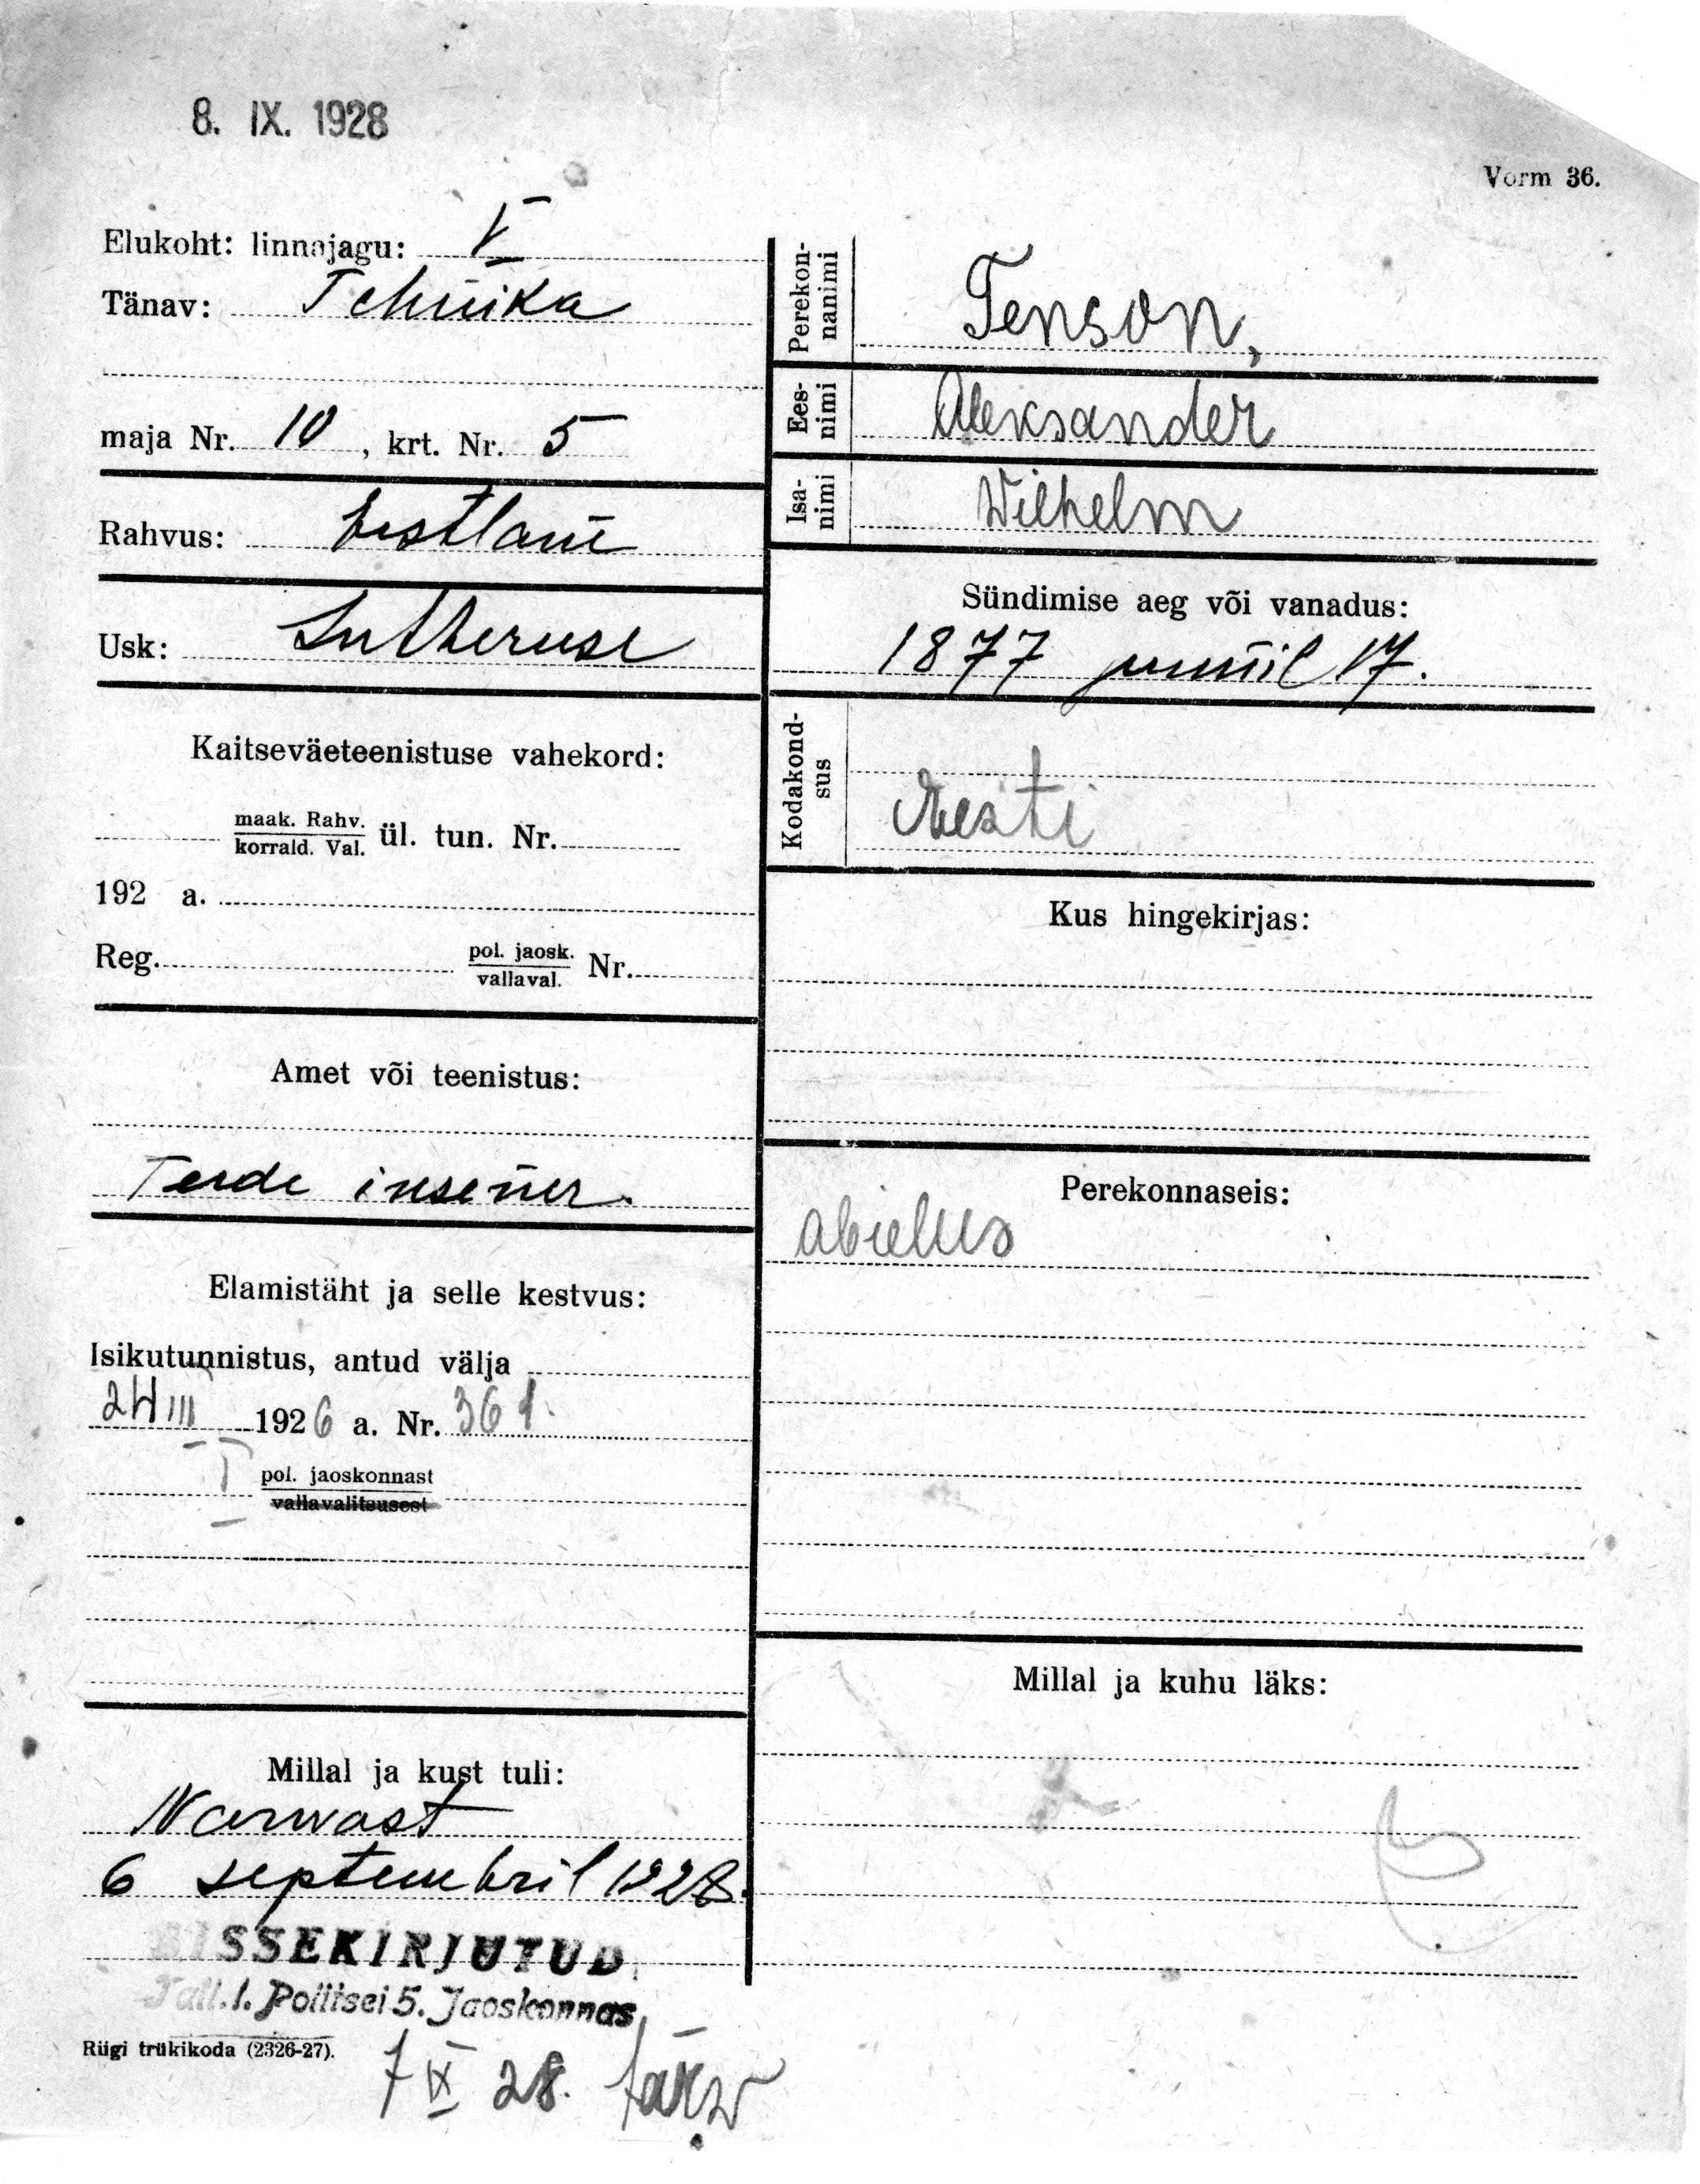 8. IX. 1928
Vorm 36.
Elukoht: linnajagu: V
Tänav: Tehnika
maja Nr. 10, krt. Nr. 5
Rahvus: Eestlane
Usk: Lutheruse
Kaitseväeteenistuse vahekord:
maak. Rahv.
korrald. Val. ül. tun. Nr.
192 a.
Reg. pol. jaosk.
vallaval. Nr.
Amet või teenistus:
Teede insener.
Elamistäht ja selle kestvus:
Isikutunnistus, antud välja
24 III 1926 a. Nr. 361.
I pol. jaoskonnast
vallavalitsusest
Millal ja kust tuli:
Narwast
6 septembril 1928.
SISSEKIRJUTUD
Tall. l. Politsei 5. Jaoskonnas
Riigi trükikoda (2326-27).
7 IX 28.
Perekon-
nanimi
Tenson,
Ees-
nimi
Aleksander
Isa-
nimi
Wilhelm
Sündimise aeg või vanadus:
1877 juunil 17.
Kodakond-
sus
Eesti
Kus hingekirjas:
Perekonnaseis:
abielus
Millal ja kuhu läks: